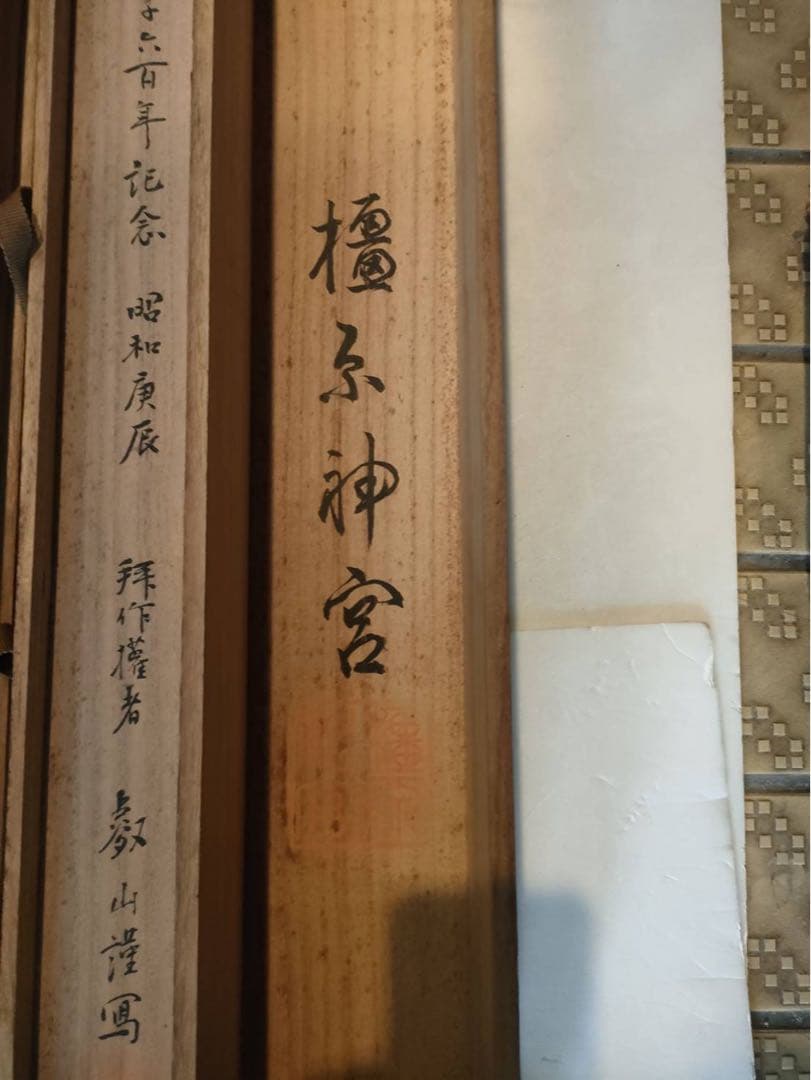 橿原神宮
千六百年記念 昭和庚辰 拜作權者 叡山謹寫